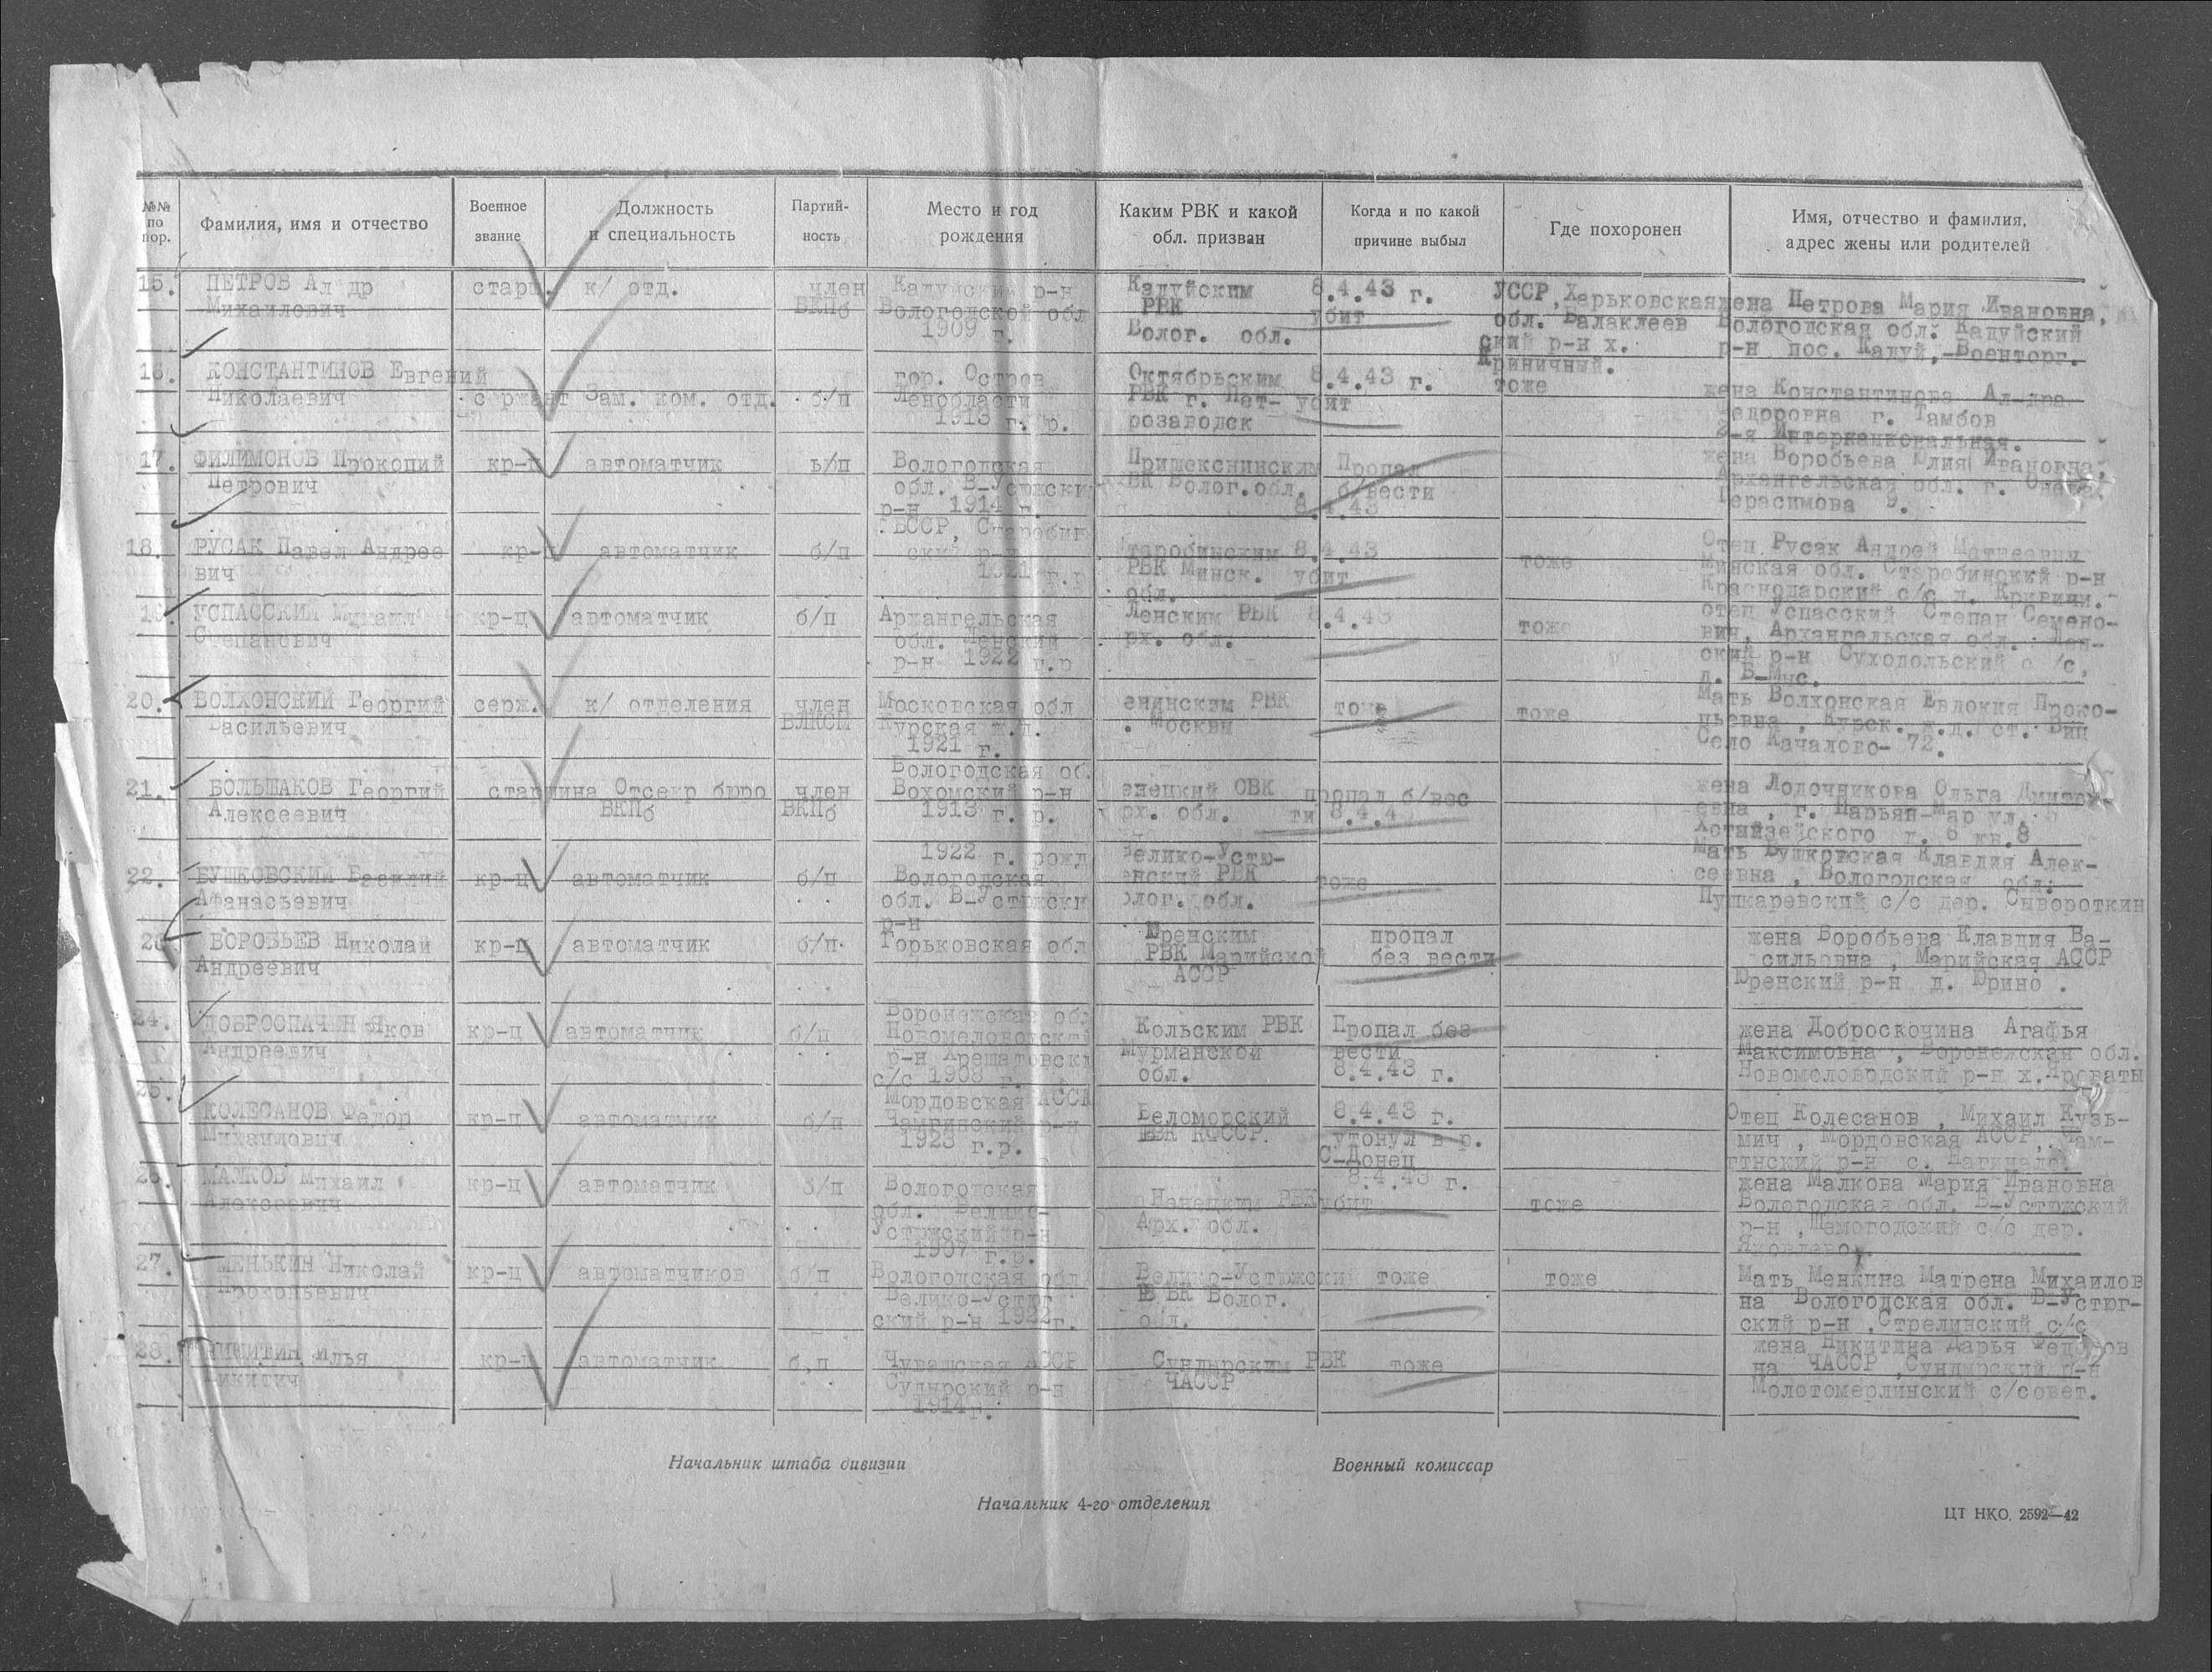 №№ по пор.
Фамилия, имя и отчество
Военное звание
Должность и специальность
Партий-ность
Место и год рождения
Каким РВК и какой обл. призван
Когда и по какой причине выбыл
Где похоронен
Имя, отчество и фамилия, адрес жены или родителей
15. ПЕТРОВ Ал др старш. к/ отд. член Кадуйский р-н Кадуйским 8.4.43 г. УССР, Харьковская жена Петрова Мария Ивановна,
Михаилович ВКПб Вологодской обл РВК убит обл. Балаклеев Вологодская обл. Кадуйский
1909 г. Волог. обл. ский р-н х. р-н пос. Кадуй, Военторг.
Криничный.
16. КОНСТАНТИНОВ Евгений гор. Остров Октябрьским 8.4.43 г. тоже жена Константинова Ал-дра
Николаевич сержант Зам. ком. отд. б/п Ленобласти РВК г. Пет- убит Федоровна г. Тамбов
1913 г. р. розаводск 2-я Интернациональная.
17. ФИЛИМОНОВ Прокопий кр-ц автоматчик б/п Вологодская Пришекснинским Пропал жена Воробьева Юлия Ивановна,
Петрович обл. В-Устюжски ВК Волог.обл. б/вести Архангельская обл. г. Онега
р-н 1914 г. 8.4.43 Герасимова 9.
18. РУСАК Павел Андрее кр-ц автоматчик б/п БССР, Старобин старобинским 8.4.43 тоже Отец Русак Андрей Матвеевич
вич ский р-н РВК Минск. убит Минская обл. Старобинский р-н
1921 г.р обл. Краснодарский с/с д. Кривичи.
19. УСПАССКИЙ Михаил кр-ц автоматчик б/п Архангельская Ленским РВК 8.4.43 тоже отец Успасский Степан Семено-
Степанович обл. Ленский рх. обл. вич, Архангельская обл. Лен-
р-н 1922 г.р ский р-н Суходольский с/с,
д. В-Мыс.
20. ВОЛХОНСКИЙ Георгий серж. к/ отделения член Московская обл енинским РВК тоже тоже Мать Волхонская Евдокия Проко-
Васильевич ВЛКСМ Курская ж.д. . Москвы пьевна , Курск. ж.д. ст. Виц
1921 г. Село Качалово- 72.
21. БОЛЬШАКОВ Георгий старшина Отсекр бюро член Вологодская об. енецкий ОВК пропал б/вес жена Лодочникова Ольга Дмитри-
Алексеевич ВКПб ВКПб Вохомский р-н рх. обл. ти 8.4.4 евна , г. Нарьян-Мар ул.
1913 г. р. д. 6 кв.8
22. БУШКОВСКИЙ Василий кр-ц автоматчик б/п 1922 г. рожд Велико-Устю- тоже Мать Бушковская Клавдия Алек-
Афанасьевич Вологодская енский РВК сеевна , Вологодская обл.
обл. В-Устюжски олог. обл. Пушкаревский с/с дер. Сывороткин
р-н
23 ВОРОБЬЕВ Николай кр-ц автоматчик б/п Горьковская обл Юренским пропал жена Воробьева Клавдия Ва-
Андреевич РВК Марийской без вести сильевна , Марийская АССР
АССР Юренский р-н д. Юрино .
24. ДОБРОСПАЧИН Яков кр-ц автоматчик б/п Воронежская обл Кольским РВК Пропал без жена Доброскочина Агафья
Андреевич Новомеловатский Мурманской вести Максимовна , Воронежская обл.
р-н обл. 8.4.43 г. Новомеловодский р-н х.Яроваты
с/с 1908 г.
25. КОЛЕСАНОВ Федор кр-ц автоматчик б/п Мордовская АССР Беломорский 8.4.43 г. Отец Колесанов , Михаил Кузь-
Михаилович Чамзинский р-н РВК КФССР. утонул в р. мич , Мордовская АССР, Чам-
1923 г.р. С-Донец р-н с.
26. МАЛКОВ Михаил кр-ц автоматчик б/п Вологодская Ненецким РВК 8.4.43 г. убит тоже жена Малкова Мария Ивановна
Алексеевич обл. Велико- Арх. обл. Вологодская обл. В-Устюжский
Устюжский р-н р-н , Шемогодский с/с дер.
1907 г.р. Яковлево.
27. МЕНЬКИН Николай кр-ц автоматчиков б/п Вологодская обл Велико-Устюжски тоже тоже Мать Менкина Матрена Михаилов
Прокопьевич Велико-Устюг РВК Волог. на Вологодская обл. В-Устюг-
ский р-н 1922г. обл. ский р-н ,Стрелинский с/с
28. НИКИТИН Илья кр-ц автоматчик б,п Чувашская АССР Сундырским РВК тоже жена Никитина Дарья Федоров
Никитич Сундрский р-н ЧАССР на ЧАССР ,Сундырский р-н
1914г. Молотомерлинский с/совет.
Начальник штаба дивизии
Военный комиссар
Начальник 4-го отделения
ЦТ НКО. 2592—42